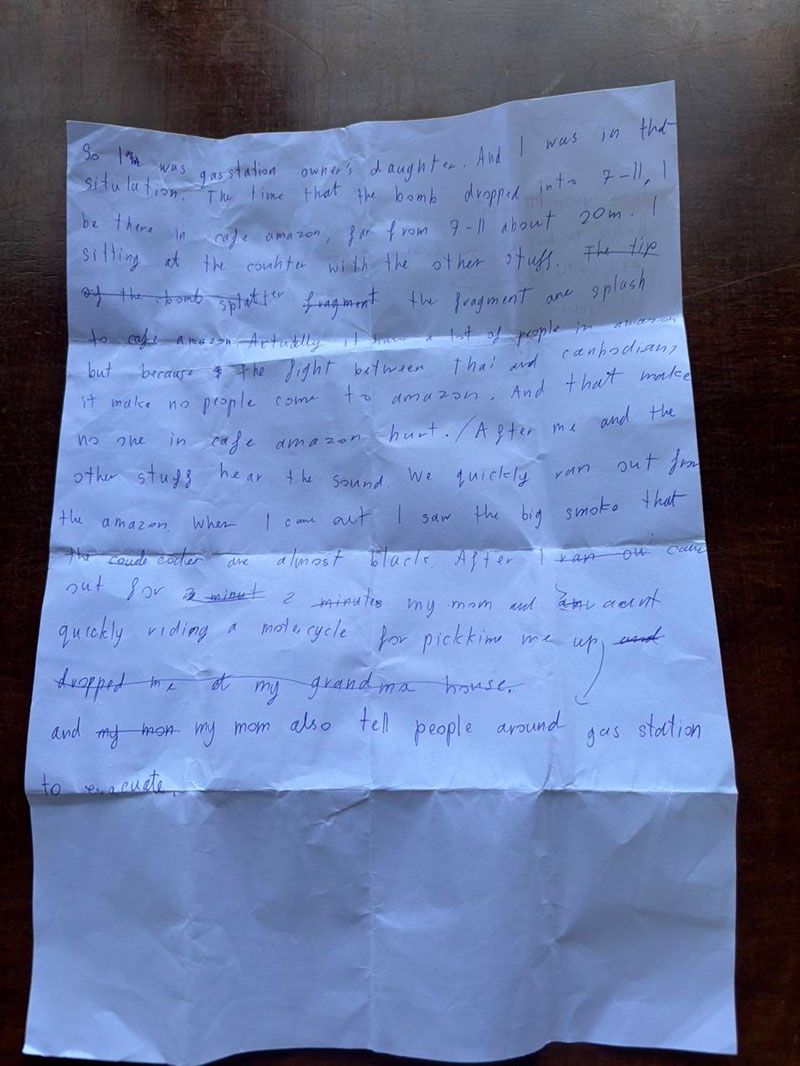 So I'm was gasstation owner's daughter. And I was in that
situlation. The time that the bomb dropped into 7-11, I
be there in cafe amazon, far from 7-11 about 20m. I
sitting at the counter with the other stuff. The tip
of the bomb splatter fragment the fragment are splash
to cafe amazon. Actually it have a lot of people in amazon
but because the fight between thai and cambodians
it make no people come to amazon. And that make
no one in cafe amazon hurt. / After me and the
other stuff hear the sound. We quickly ran out from
the amazon. When I came out I saw the big smoke that
the are almost black. After I ran ou came
out for 2 minut 2 minutes my mom and aunt
quickly riding a motercycle for pickking me up and
dropped me at my grandma house.
and my mom my mom also tell people around gas station
to evacuate.